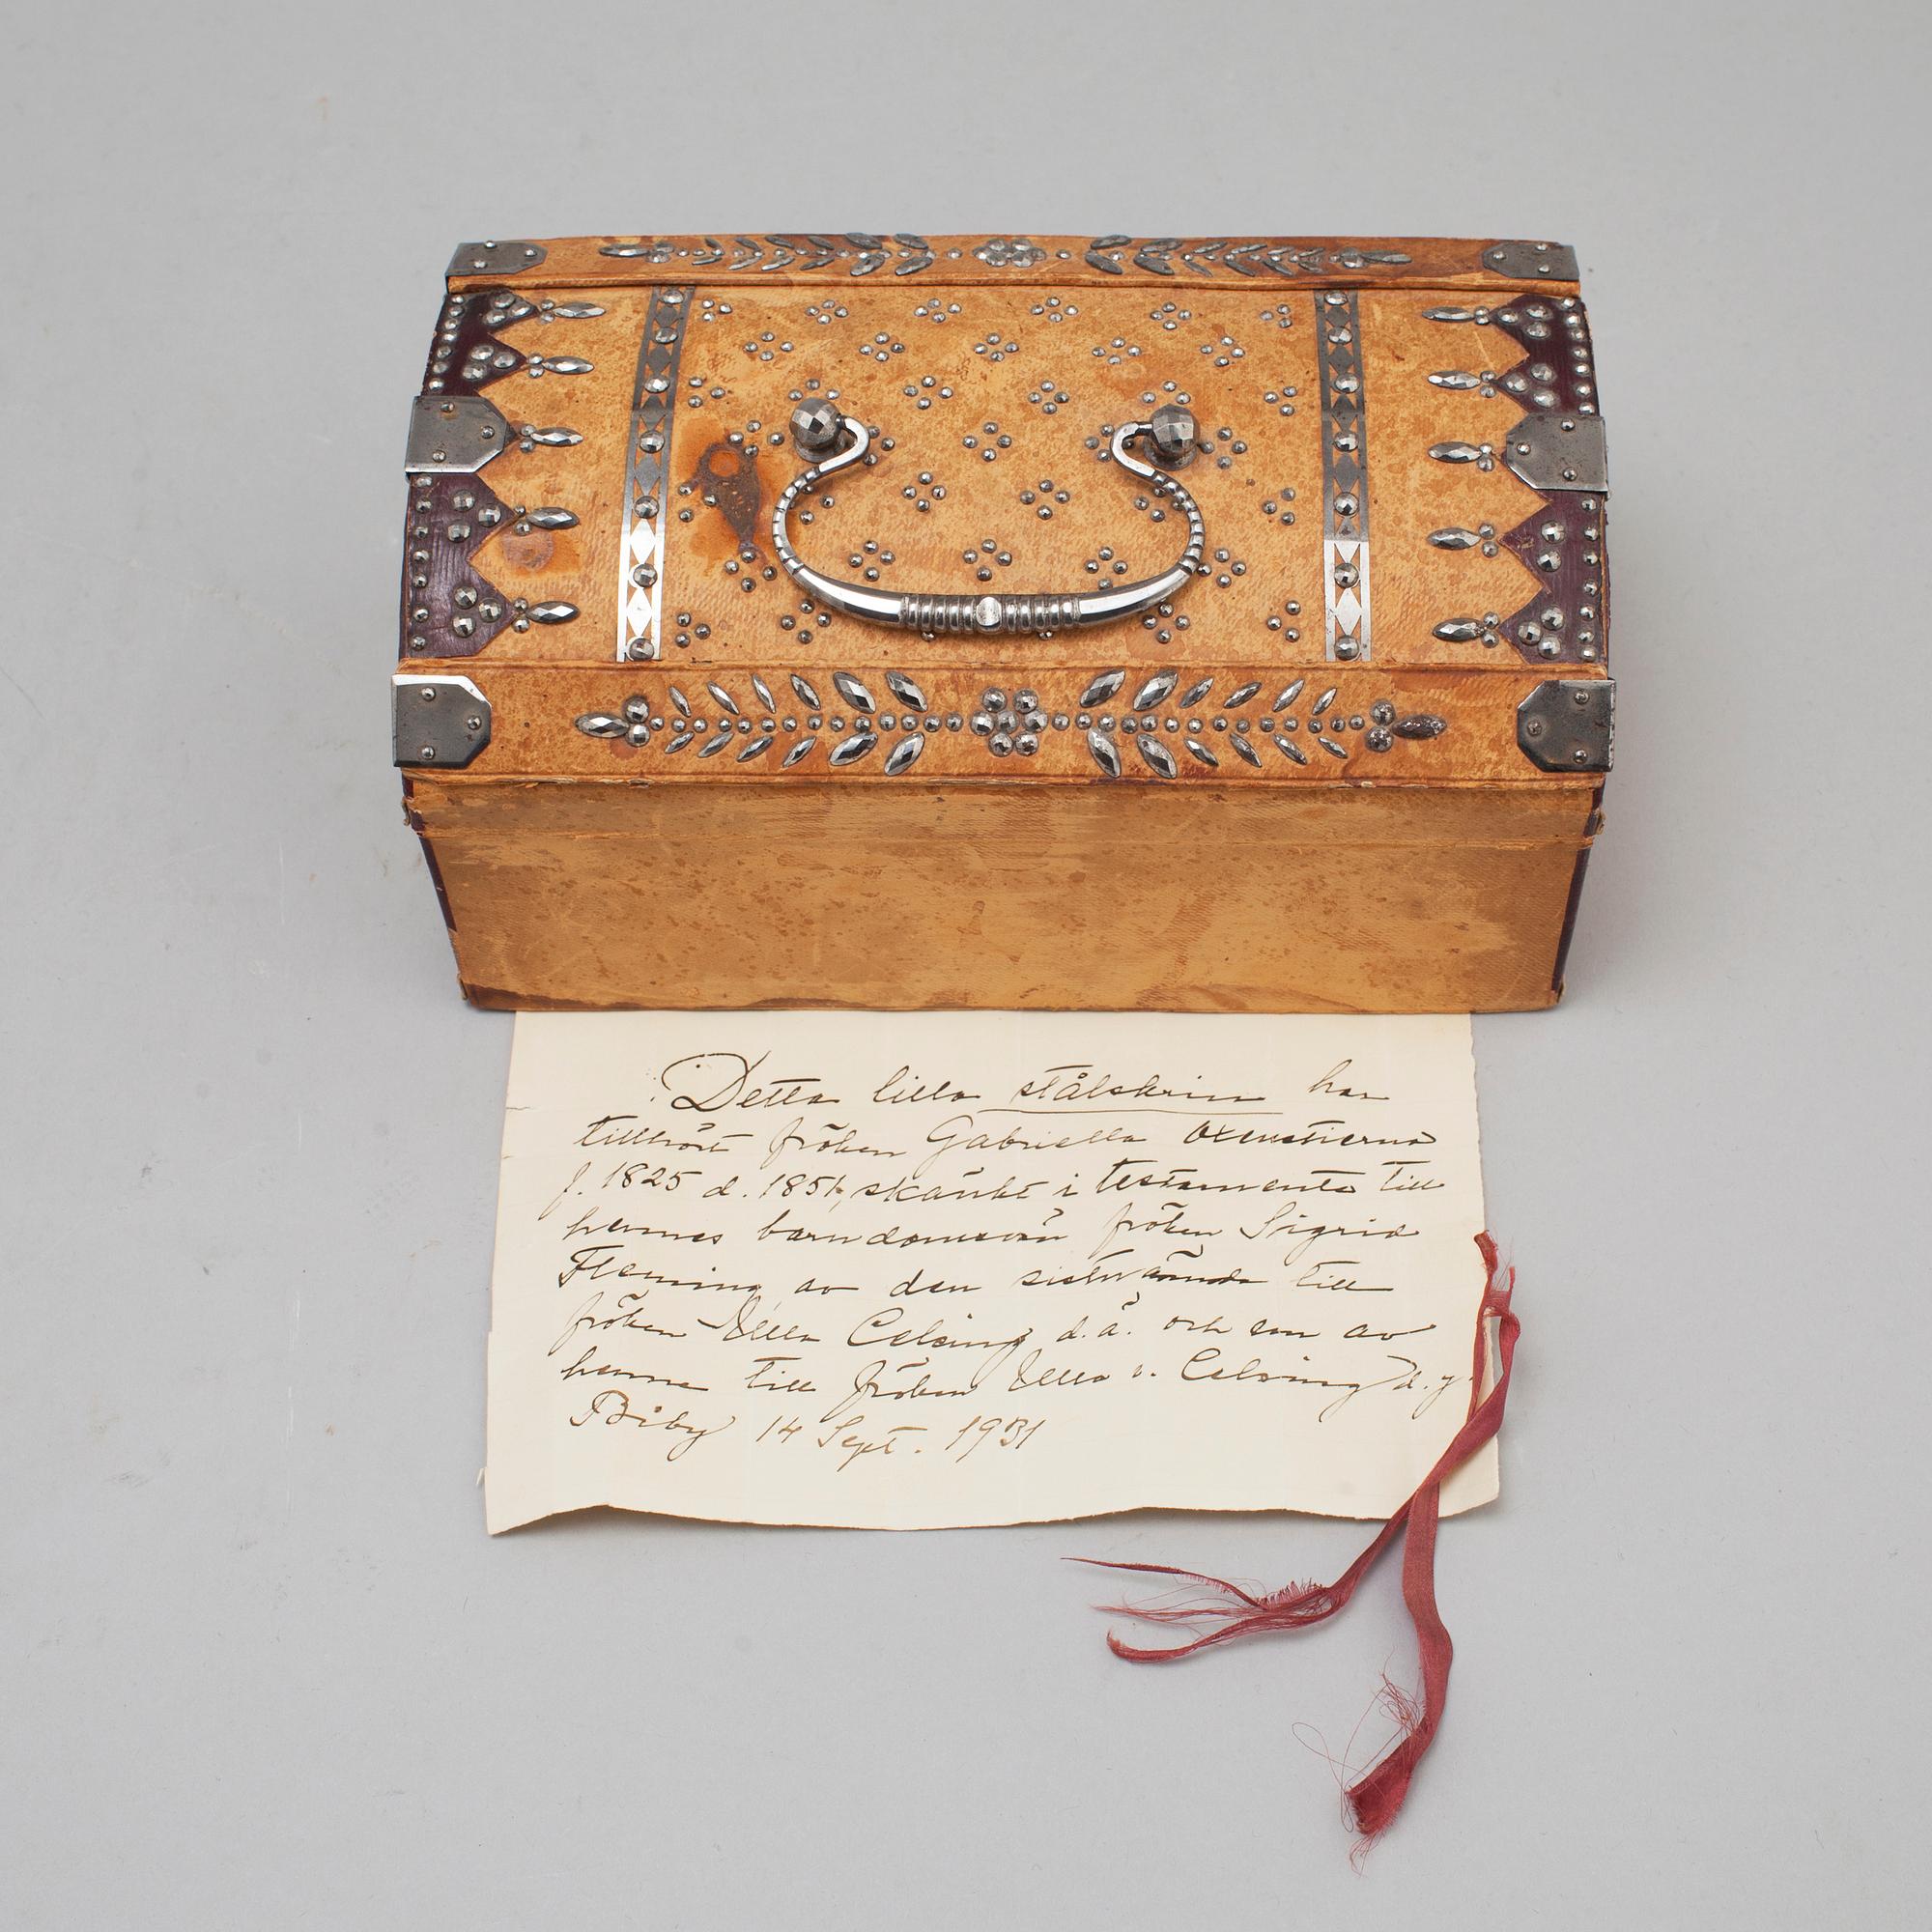 Detta lilla stålskrin har
tillhört fröken Gabriella Oxenstierna
f. 1825 d. 1851, skänkt i testamente till
hennes barndomsvän fröken Sigrid
Fleming, av den sistnämnda till
fröken Ulla Celsing d.ä. och sen av
henne till fröken Ulla v. Celsing d.y.
Biby 14 Sept. 1931